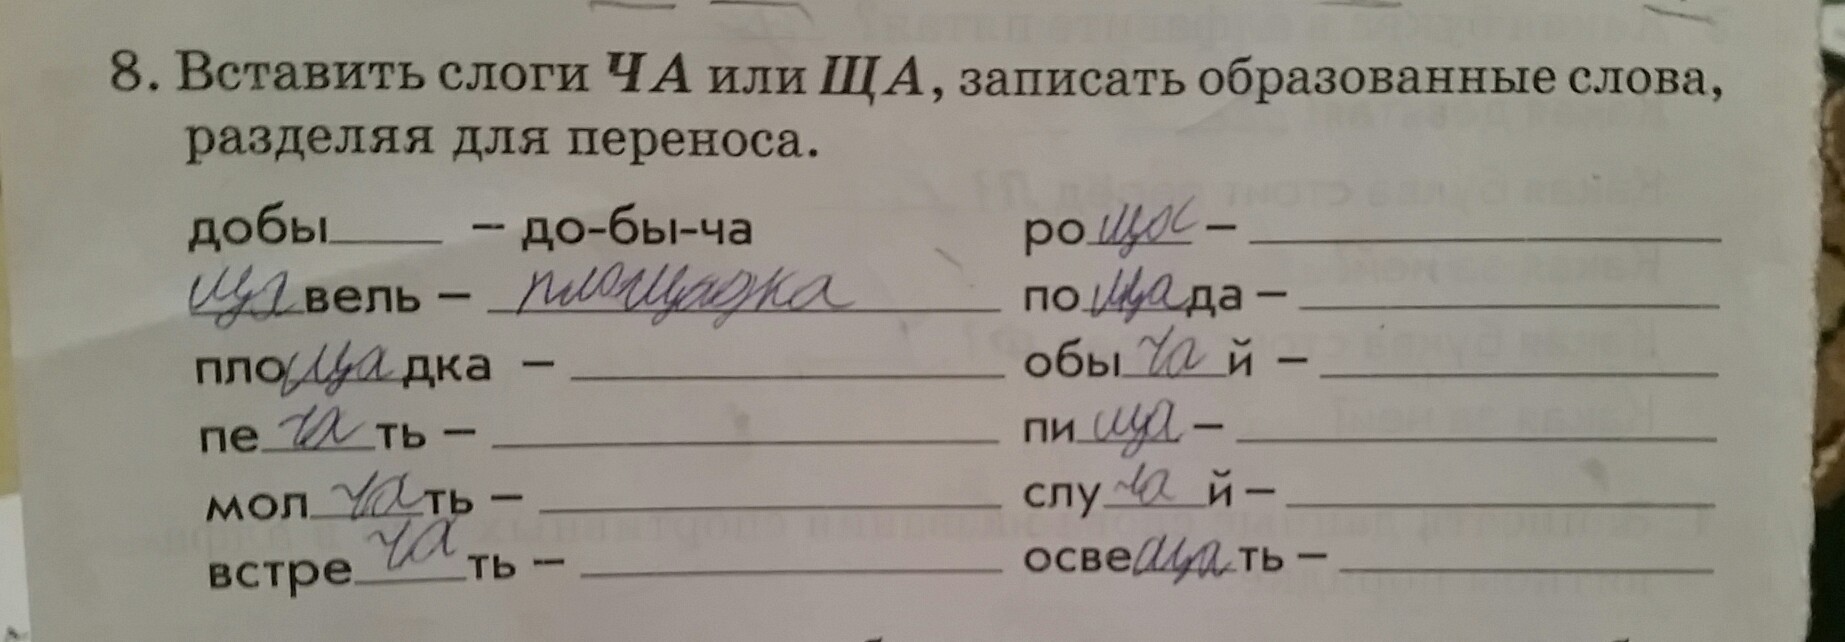 8. Вставить слоги ЧА или ЩА, записать образованные слова,
разделяя для переноса.
добы____ – до-бы-ча
щавель – площадка
площадка – ____
печать – ____
молчать – ____
встречать – ____
роща – ____
пощада – ____
обычай – ____
пища – ____
случай – ____
освещать – ____